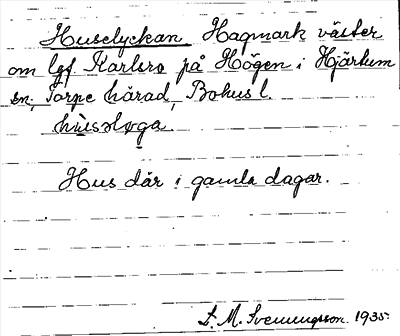 Huselyckan Hagmark väster
om lgf. Karlsro på Högen i Hjärtum
sn, Torpe härad, Bohusl.
hùsəløga.
Hus där i gamla dagar.
D. M. Svenningsson 1935.